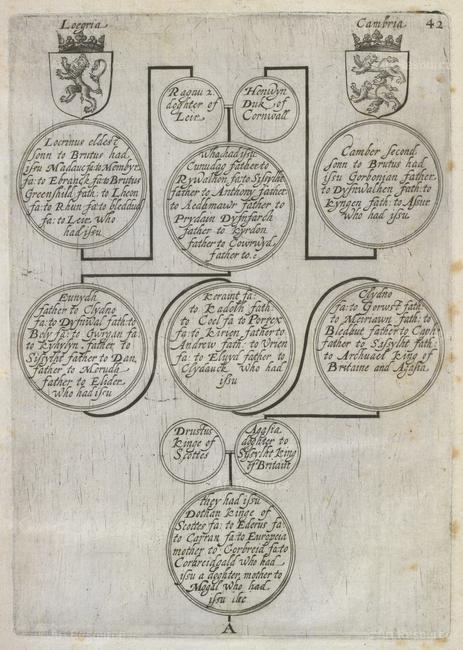 Loegria
Cambria
42
Ragau 2.
doghter of
Leir.
Henwyn
Duk of
Cornwall
Locrinus eldest
sonn to Brutus had
issu Madauc fa: to Membyr
fa: to Ebranck fa: to Brutus
Greenshild fath: to Lheon
fa: to Rhun fa: to bleddud
fa: to Leir. Who
had issu
Who had issu
Cunudag father to
Rywalhon fa: to Sysylht
father to Anthony father
to Aedhmawr father to
Prydain Dyfnfarch
father to kyrdon
father to Cowrwyd
father to. e
Camber second
sonn to Brutus had
issu Gorbonian father
to Dyfnwalhen fath: to
kyngen fath: to Assur
Who had issu.
Eunydh
father to Clydno
fa: to Dyfnwal fath: to
Bely fa: to Gwryan fa:
to kyhylyn father to
Sissylht father to Dan.
father to Morudh
father to Elider
Who had issu
Keraint fa:
to Kadolh fath:
to Coel fa: to Portex
fa: to kirien father to
Andrew fath: to Vrien
fa: to Eluyd father to
Clydauck Who had
issu
Clydno
fa: to Gorwst fath:
to Meiriawn fath: to
Bledhut father to Caph
father to Sassylht fath:
to Archuael king of
Britaine and Agasia.
Drustus
kinge of
Scottes
Agasia
doghter to
Sysylht king
of Britaine
they had issu
Dothan kinge of
Scottes fa: to Ederus fa:
to Casran fa: to Europeia
mother to Gorbreid fa: to
Corbreidgald Who had
issu a doghter, mother to
Mogal Who had
issu &c
A